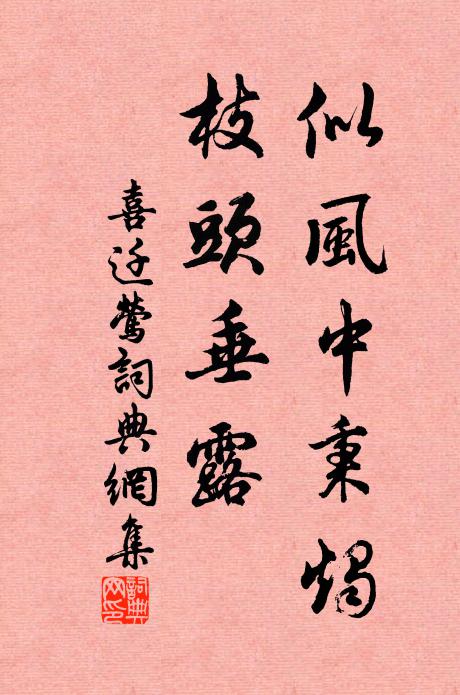 似風中秉燭
枝頭垂露
喜迁鶯詞典網集
詞典
网印